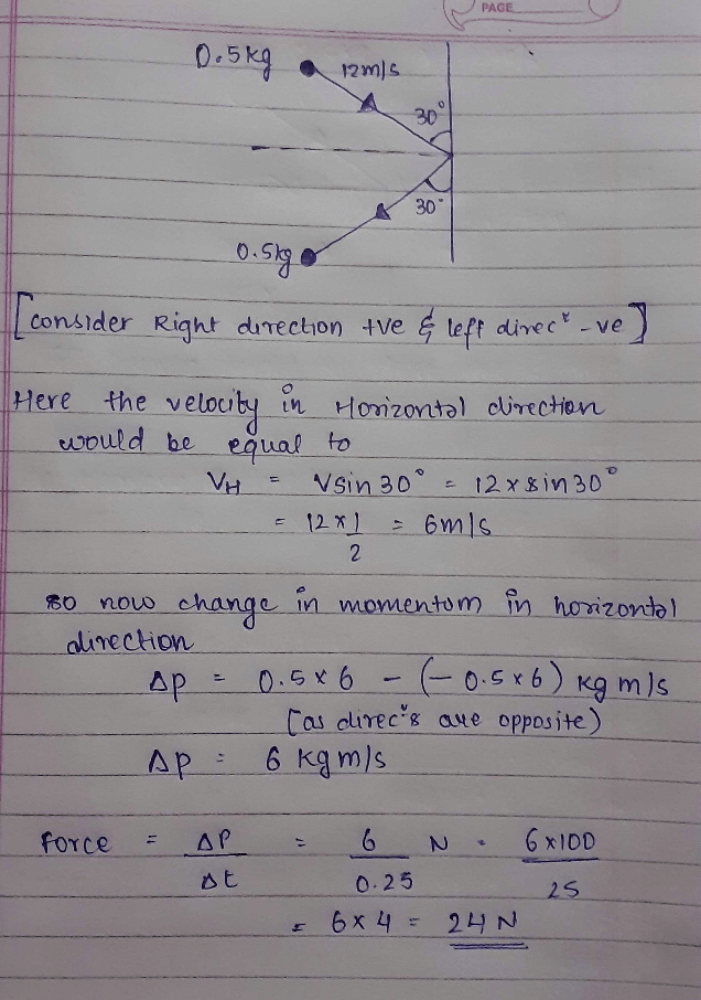 PAGE
0.5kg
12m/s
30°
30°
0.5kg
[consider Right direction +ve & left direcⁿ -ve]
Here the velocity in Horizontal direction
would be equal to
VH = Vsin30° = 12 x sin30°
= 12 x 1/2 = 6m/s
so now change in momentum in horizontal
direction
Δp = 0.5 x 6 - (- 0.5 x 6) kg m/s
[as direcⁿs are opposite)
Δp = 6 kgm/s
Force = ΔP/Δt = 6/0.25 N = 6x100/25
= 6 x 4 = 24 N